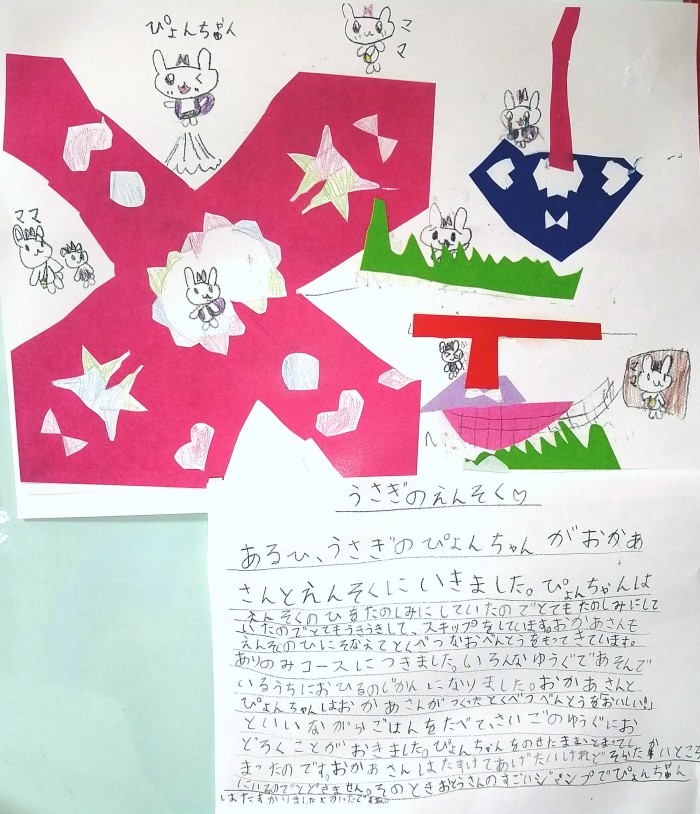 ぴょんちゃん
ママ
ママ
ママ
うさぎのえんそく♡
あるひ、うさぎのぴょんちゃんがおかあ
さんとえんそくにいきました。ぴょんちゃんは
えんそくのひをたのしみにしていたのでとてもたのしみにして
いたのでとてもうきうきして、スキップをしています。おかあさんも
えんそくのひにそなえてとくべつなおべんとうをもってきています。
ありのみコースにつきました。いろんなゆうぐであそんで
いるうちにおひるのじかんになりました。おかあさんと
ぴょんちゃんはおかあさんがつくったとくべつべんとうを「おいしい!!」
といいながらごはんをたべて、さいごのゆうぐにお
どろくことがおきました。ぴょんちゃんをのせたままとまってし
まったのです。おかあさんはたすけてあげたいけれどそらたかいところ
にいるのでとどきません。そのときおとうさんのすごいジャンプでぴょんちゃん
はたすかりましたとさ